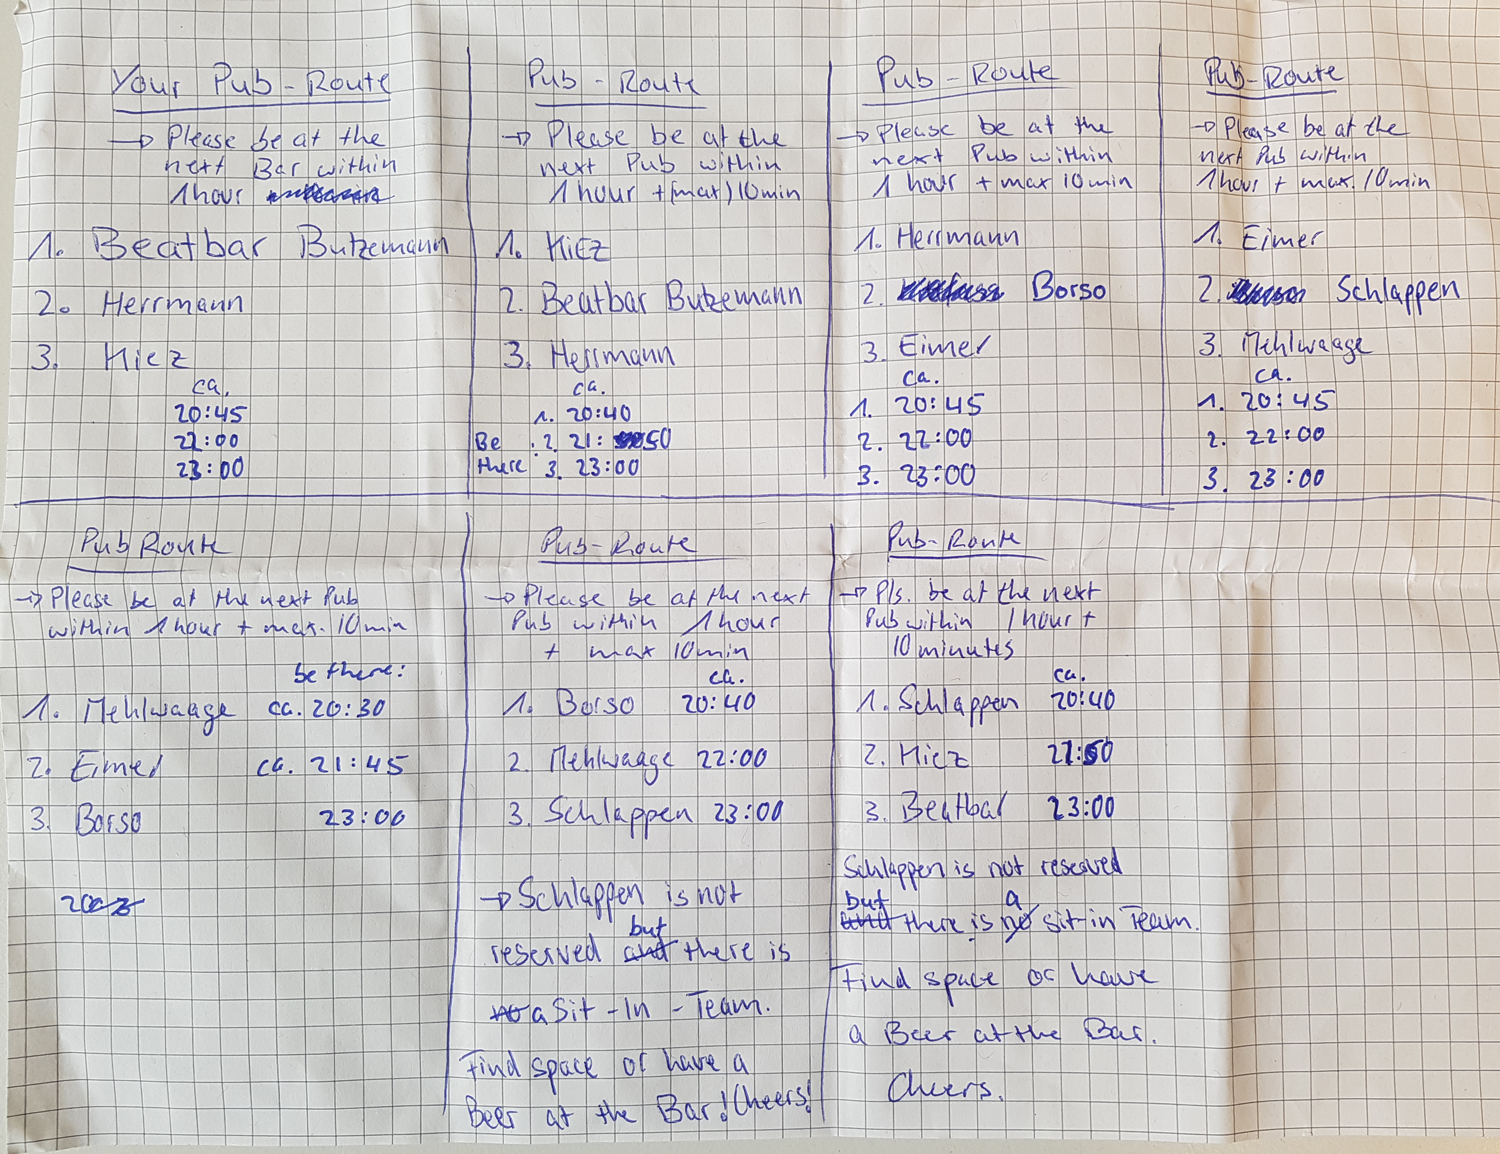 Your Pub-Route
→ Please be at the
next Bar within
1 hour
1. Beatbar Butzemann
2. Herrmann
3. Kiez
ca.
20:45
22:00
23:00
Pub - Route
→ Please be at the
next Pub within
1 hour + (max) 10min
1. Kiez
2. Beatbar Butzemann
3. Herrmann
ca.
1. 20:40
Be : 2. 21:50
there 3. 23:00
Pub - Route
→ Please be at the
next Pub within
1 hour + max 10min
1. Herrmann
2. Borso
3. Eimer
ca.
1. 20:45
2. 22:00
3. 23:00
Pub-Route
→ Please be at the
next Pub within
1 hour + max. 10min
1. Eimer
2. Schlappen
3. Mehlwaage
ca.
1. 20:45
2. 22:00
3. 23:00
Pub Route
→ Please be at the next Pub
within 1 hour + max. 10min
be there:
1. Mehlwaage ca. 20:30
2. Eimer ca. 21:45
3. Borso 23:00
Pub-Route
→ Please be at the next
Pub within 1 hour
+ max 10min
ca.
1. Borso 20:40
2. Mehlwaage 22:00
3. Schlappen 23:00
→ Schlappen is not
but
reserved and there is
no a Sit-In-Team.
Find space or have a
Beer at the Bar! Cheers!
Pub-Route
→ Pls. be at the next
Pub within 1 hour +
10 minutes
ca.
1. Schlappen 20:40
2. Kiez 21:50
3. Beatbar 23:00
Schlappen is not reserved
but a
and there is no sit-in Team.
Find space or have
a Beer at the Bar.
Cheers.